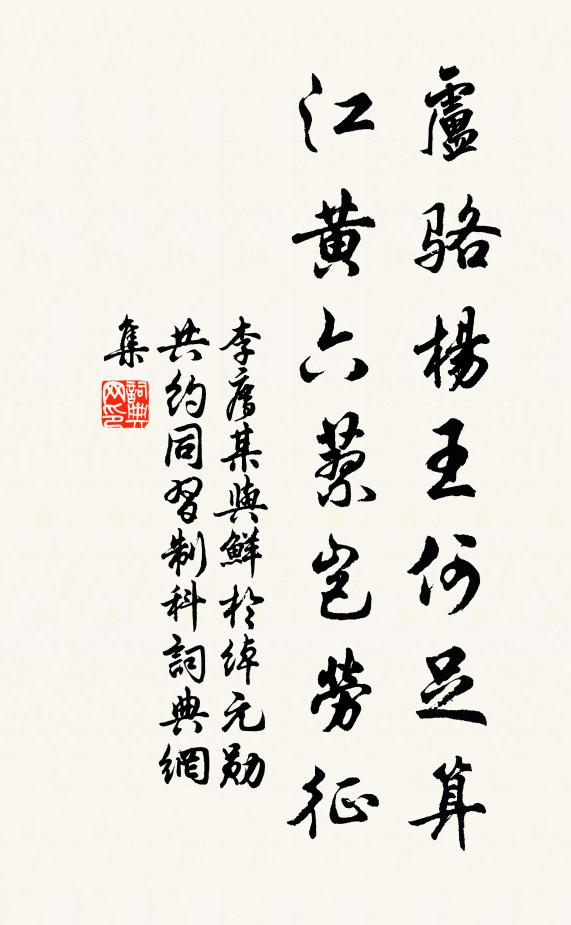 盧駱楊王何足算
江黃六蓼豈勞征
李廌某與鮮於綽元勛
共約同習制科詞典網
集
詞典
网印